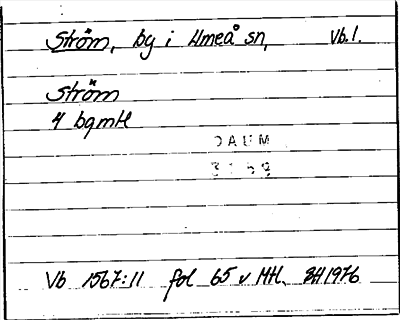 Ström, by i Umeå sn, Vb.l.
Ström
4 bqmtl
DAUM
3169
Vb 1567:11 fol 65 v Mtl. BH 1976